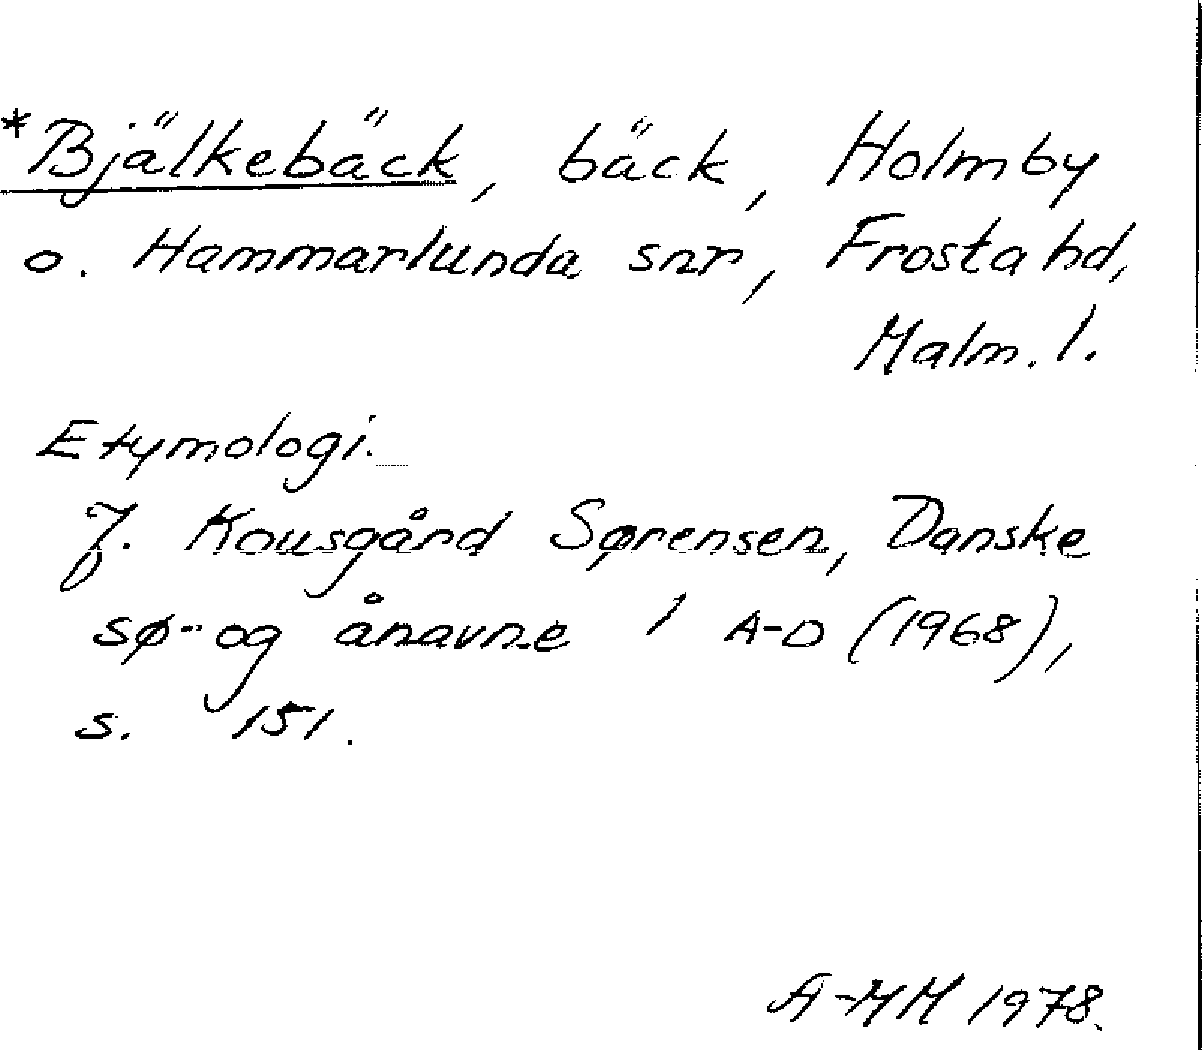 *Bjälkebäck, bäck, Holmby
o. Hammarlunda snr, Frosta hd,
Malm. l.
Etymologi.
J. Kousgård Sørensen, Danske
sø- og ånavne 1 A-D (1968),
s. 151.
A-MM 1978.